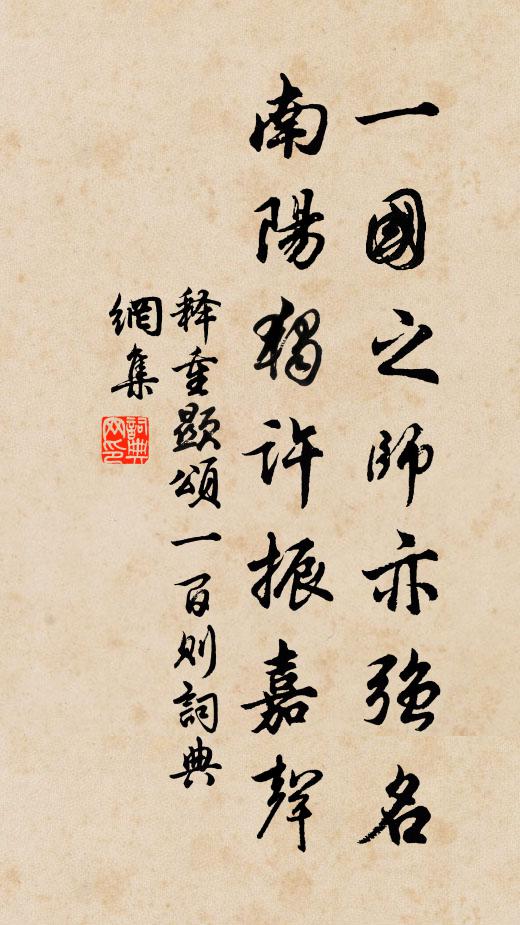 一國之師亦強名
南陽獨许振嘉聲
释重顯頌一百则詞典
網集
詞典
网印